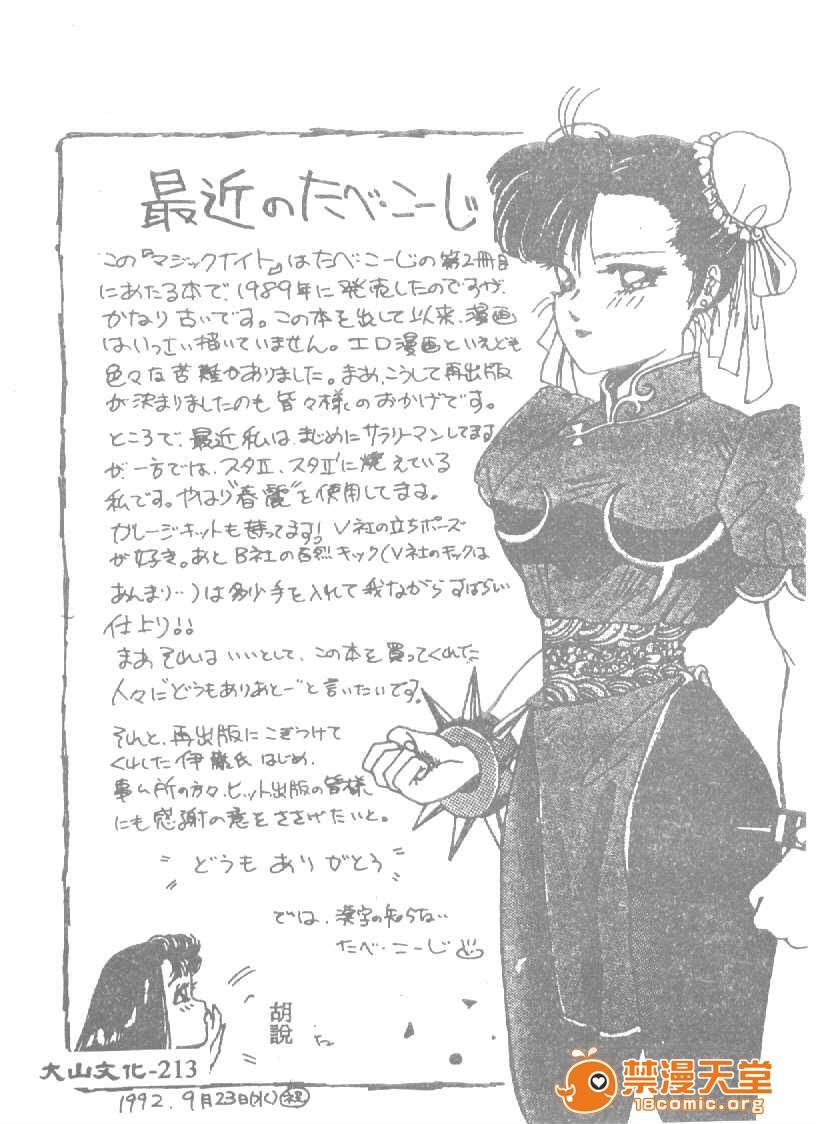 最近のたべ・こーじ
この『マジックナイト』はたべ・こーじの第2冊目
にあたる本で、1989年に発売したのですが、
かなり古いです。この本を出して以来、漫画
はいっさい描いていません。エロ漫画といえども
色々な苦難がありました。まあ、こうして再出版
が決まりましたのも皆々様のおかげです。
ところで、最近私は、まじめにサラリーマンしてます
が、一方では、スタII、スタII'に燃えている
私です。やはり"春麗"を使用してます。
ガレージキットも持ってます! V社の立ちポーズ
が好き。あと B社の百烈キック(V社のキックは
あんまり…)は多少手を入れて我ながらすばらしい
仕上り!!
まあ それは いいとして、この本を買ってくれた
人々に"どうもありあとー"と言いたいです。
それと、再出版にこぎつけて
くれました伊 氏はじめ、
事ム所の方々、ヒット出版の皆様
にも感謝の意をささげたいと。
どうも ありがとう
では、漢字の知らない
たべ・こーじ
胡說
大山文化-213
1992.9月23日(水)祝
禁漫天堂
18comic.org